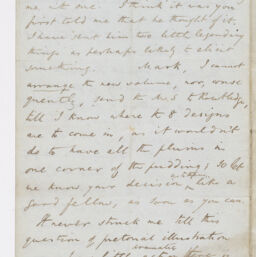 me at one. I think it was you
first told me that he thought of it.
I have sent him two little legendary
things as perhaps likely to elicit
something. Mark, I cannot
arrange the new volume, nor, conse
quently, send the MS to Routledge,
till I know where the 8 designs
are to come in, as it wouldn't
do to have all the plums in
one corner of the pudding; so let
we know your decision like a
good fellow, as soon as you can.
It never struck me till this
question of pictorial illustration